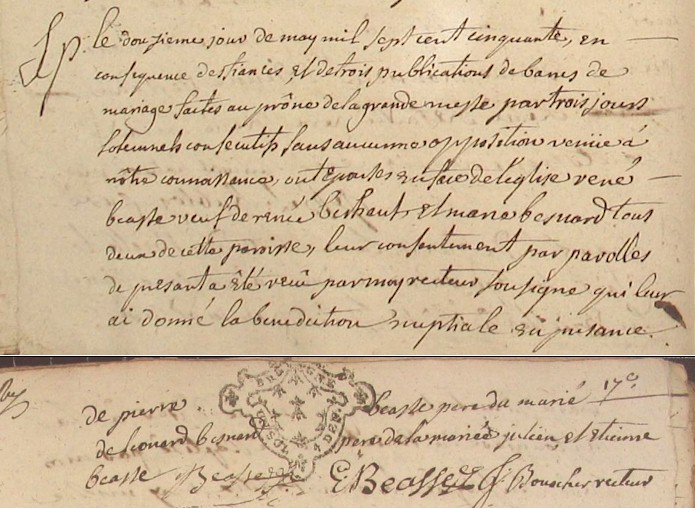 le douzieme jour de may mil sept cent cinquante, en
consequence des fiancés et de trois publications de bans de
mariage faites au prône de la grande messe par trois jours
solennels consecutifs sans aucunne opposition venüe á
nôtre connaissance, ont Epousés en face de l'église rené
beasse veuf de renée berhaut, et marie besnard tous
deux de cette paroisse, leur consentement par parolles
de presant a été recû par moy recteur soussigné qui leur
ai donné la benediction nuptiale en presance
de pierre beasse pere du marié 17e
de leonard besnard pere de la mariée julien, et etienne
beasse Beasse E Beasse Bouscher recteur